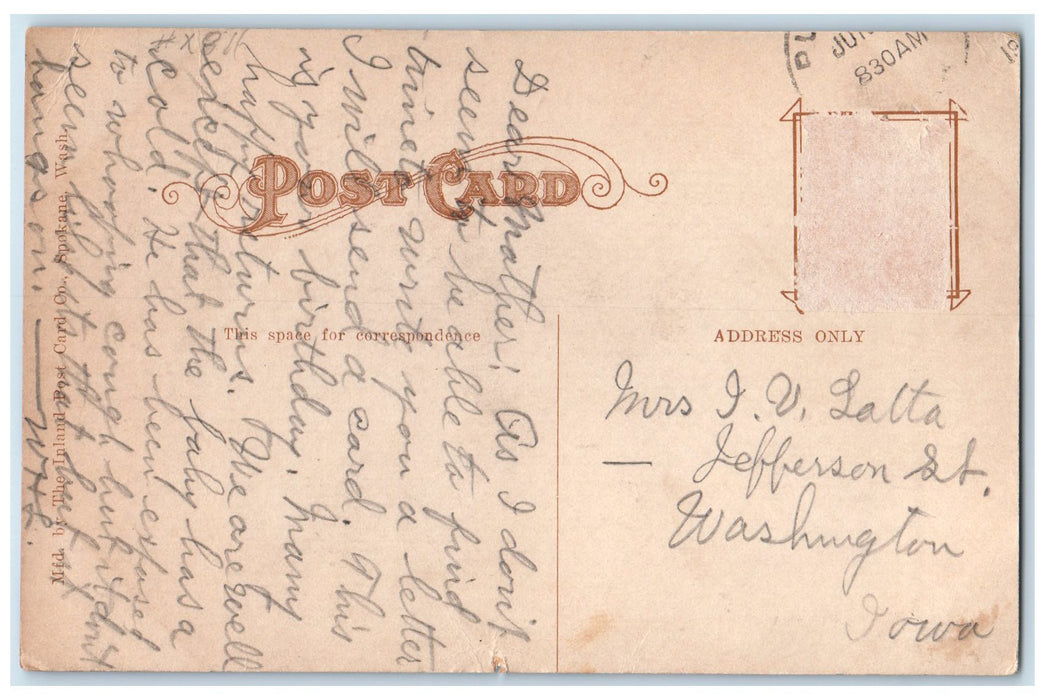 PU
JUN
830AM
19
POST CARD
This space for correspondence
ADDRESS ONLY
Mfd. by The Inland Post Card Co., Spokane, Wash.
Dear Mother! As I don't
seem to be able to find
time to write you a letter
I will send a card. This
is your birthday. Many
happy returns. We are well
except that the baby has a
cold. He has been exposed
to whooping cough but it don't
seem like its that but it
hangs on.
Mrs I. V. Latta
— Jefferson St.
Washington
Iowa